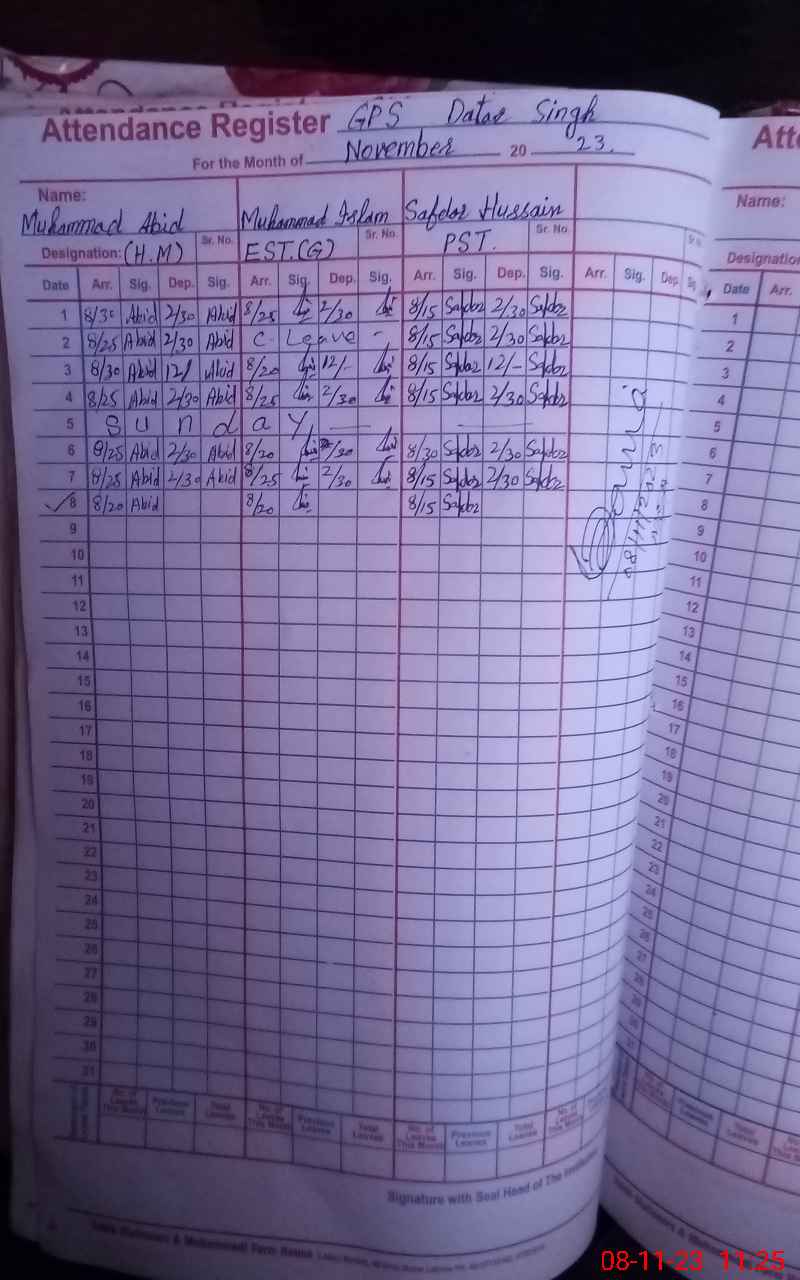 Attendance Register GPS Datar Singh
For the Month of November 20 23.
Name: Muhammad Abid Muhammad Islam Safdar Hussain
Designation: (H.M) Sr. No. EST.(G) Sr. No. PST. Sr. No.
Date Arr. Sig. Dep. Sig. Arr. Sig. Dep. Sig. Arr. Sig. Dep. Sig. Arr. Sig. Dep. Sig.
1 8/30 Abid 2/30 Abid 8/25 2/30 8/15 Safdar 2/30 Safdar
2 8/25 Abid 2/30 Abid C. Leave - 8/15 Safdar 2/30 Safdar
3 8/30 Abid 12/ Abid 8/20 12/- 8/15 Safdar 12/- Safdar
4 8/25 Abid 2/30 Abid 8/25 2/30 8/15 Safdar 2/30 Safdar
5 Sunday
6 8/25 Abid 2/30 Abid 8/20 2/30 8/30 Safdar 2/30 Safdar
7 8/25 Abid 2/30 Abid 8/25 2/30 8/15 Safdar 2/30 Safdar
8 8/20 Abid 8/20 8/15 Safdar
9
10
11
12
13
14
15
16
17
18
19
20
21
22
23
24
25
26
27
28
29
30
31
No. of Leaves This Month Previous Leaves Total Leaves No. of Leaves This Month Previous Leaves Total Leaves No. of Leaves This Month Previous Leaves Total Leaves No. of Leaves This Month
Signature with Seal Head of The
Att
Name:
Designation
Date Arr.
1
2
3
4
5
6
7
8
9
10
11
12
13
14
15
16
17
18
19
20
21
22
23
24
25
26
27
28
29
30
31
08-11-23 11:25